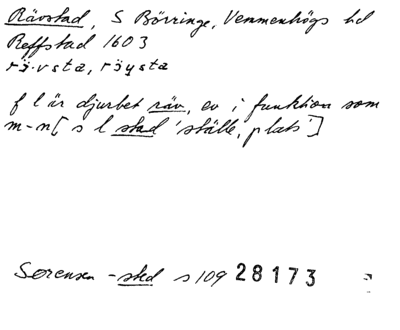 Rävstad, S Börringe, Vemmenhögs hd
Reffstad 1603
f l är djurbet räv, ev i funktion som
m-n [ s l stad 'ställe, plats' ]
Sørensen -sted s 109 28173